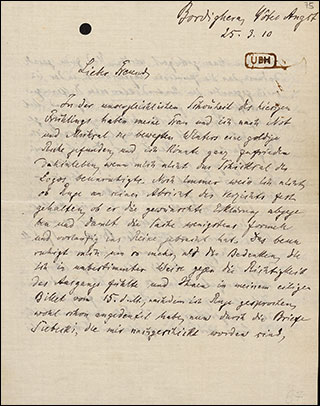 75
Bordighera, Hôtel Angst
25. 3. 10
UBH
Lieber Freund,
In der unvergleichlichen Schönheit des hiesigen
Frühlings haben meine Frau und ich nach Not
und Mühsal des bewegten Winters eine goldige
Ruhe gefunden, und ich könnte ganz zufrieden
dahinleben, wenn mich nicht das Schicksal des
Logos beunruhigte. Noch immer weiss ich nicht,
ob Ruge an seiner Absicht des Verzichts fest-
gehalten, ob er die gewünschte Erklärung abgege-
ben und damit die Sache wenigstens formell
und vorläufig ins Reine gebracht hat. Das beun-
ruhigt mich um so mehr, als die Bedenken, die
ich in unbestimmter Weise gegen die Richtigkeit
des Ausgangs fühlte und Ihnen in meinem eiligen
Billet vom 15. nachdem ich Ruge gesprochen,
wohl schon angedeutet habe, nun durch die Briefe
Siebecks, die mir nachgeschickt worden sind,